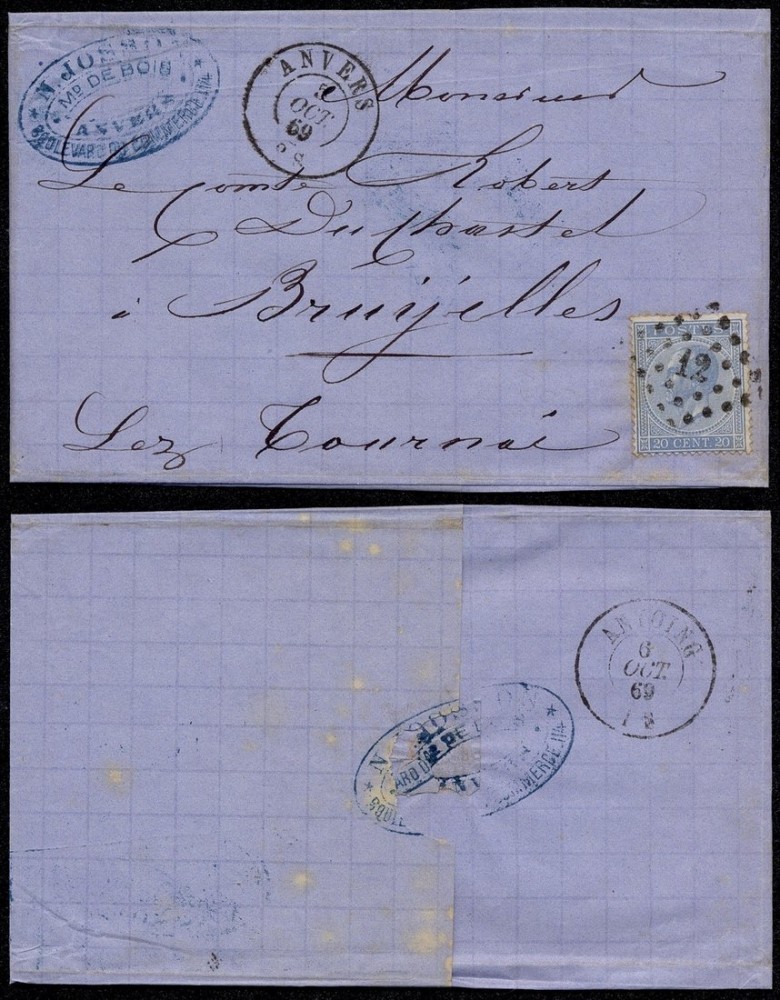 Md DE BOIS
ANVERS
BOULEVARD DU COMMERCE 114
ANVERS
OCT.
69
Monsieur
Le Comte Robert
DuChastel
à Bruyelles
Lez Tournai
POSTES
12
20 CENT. 20
ANTOING
6
OCT.
69
COMMERCE.114